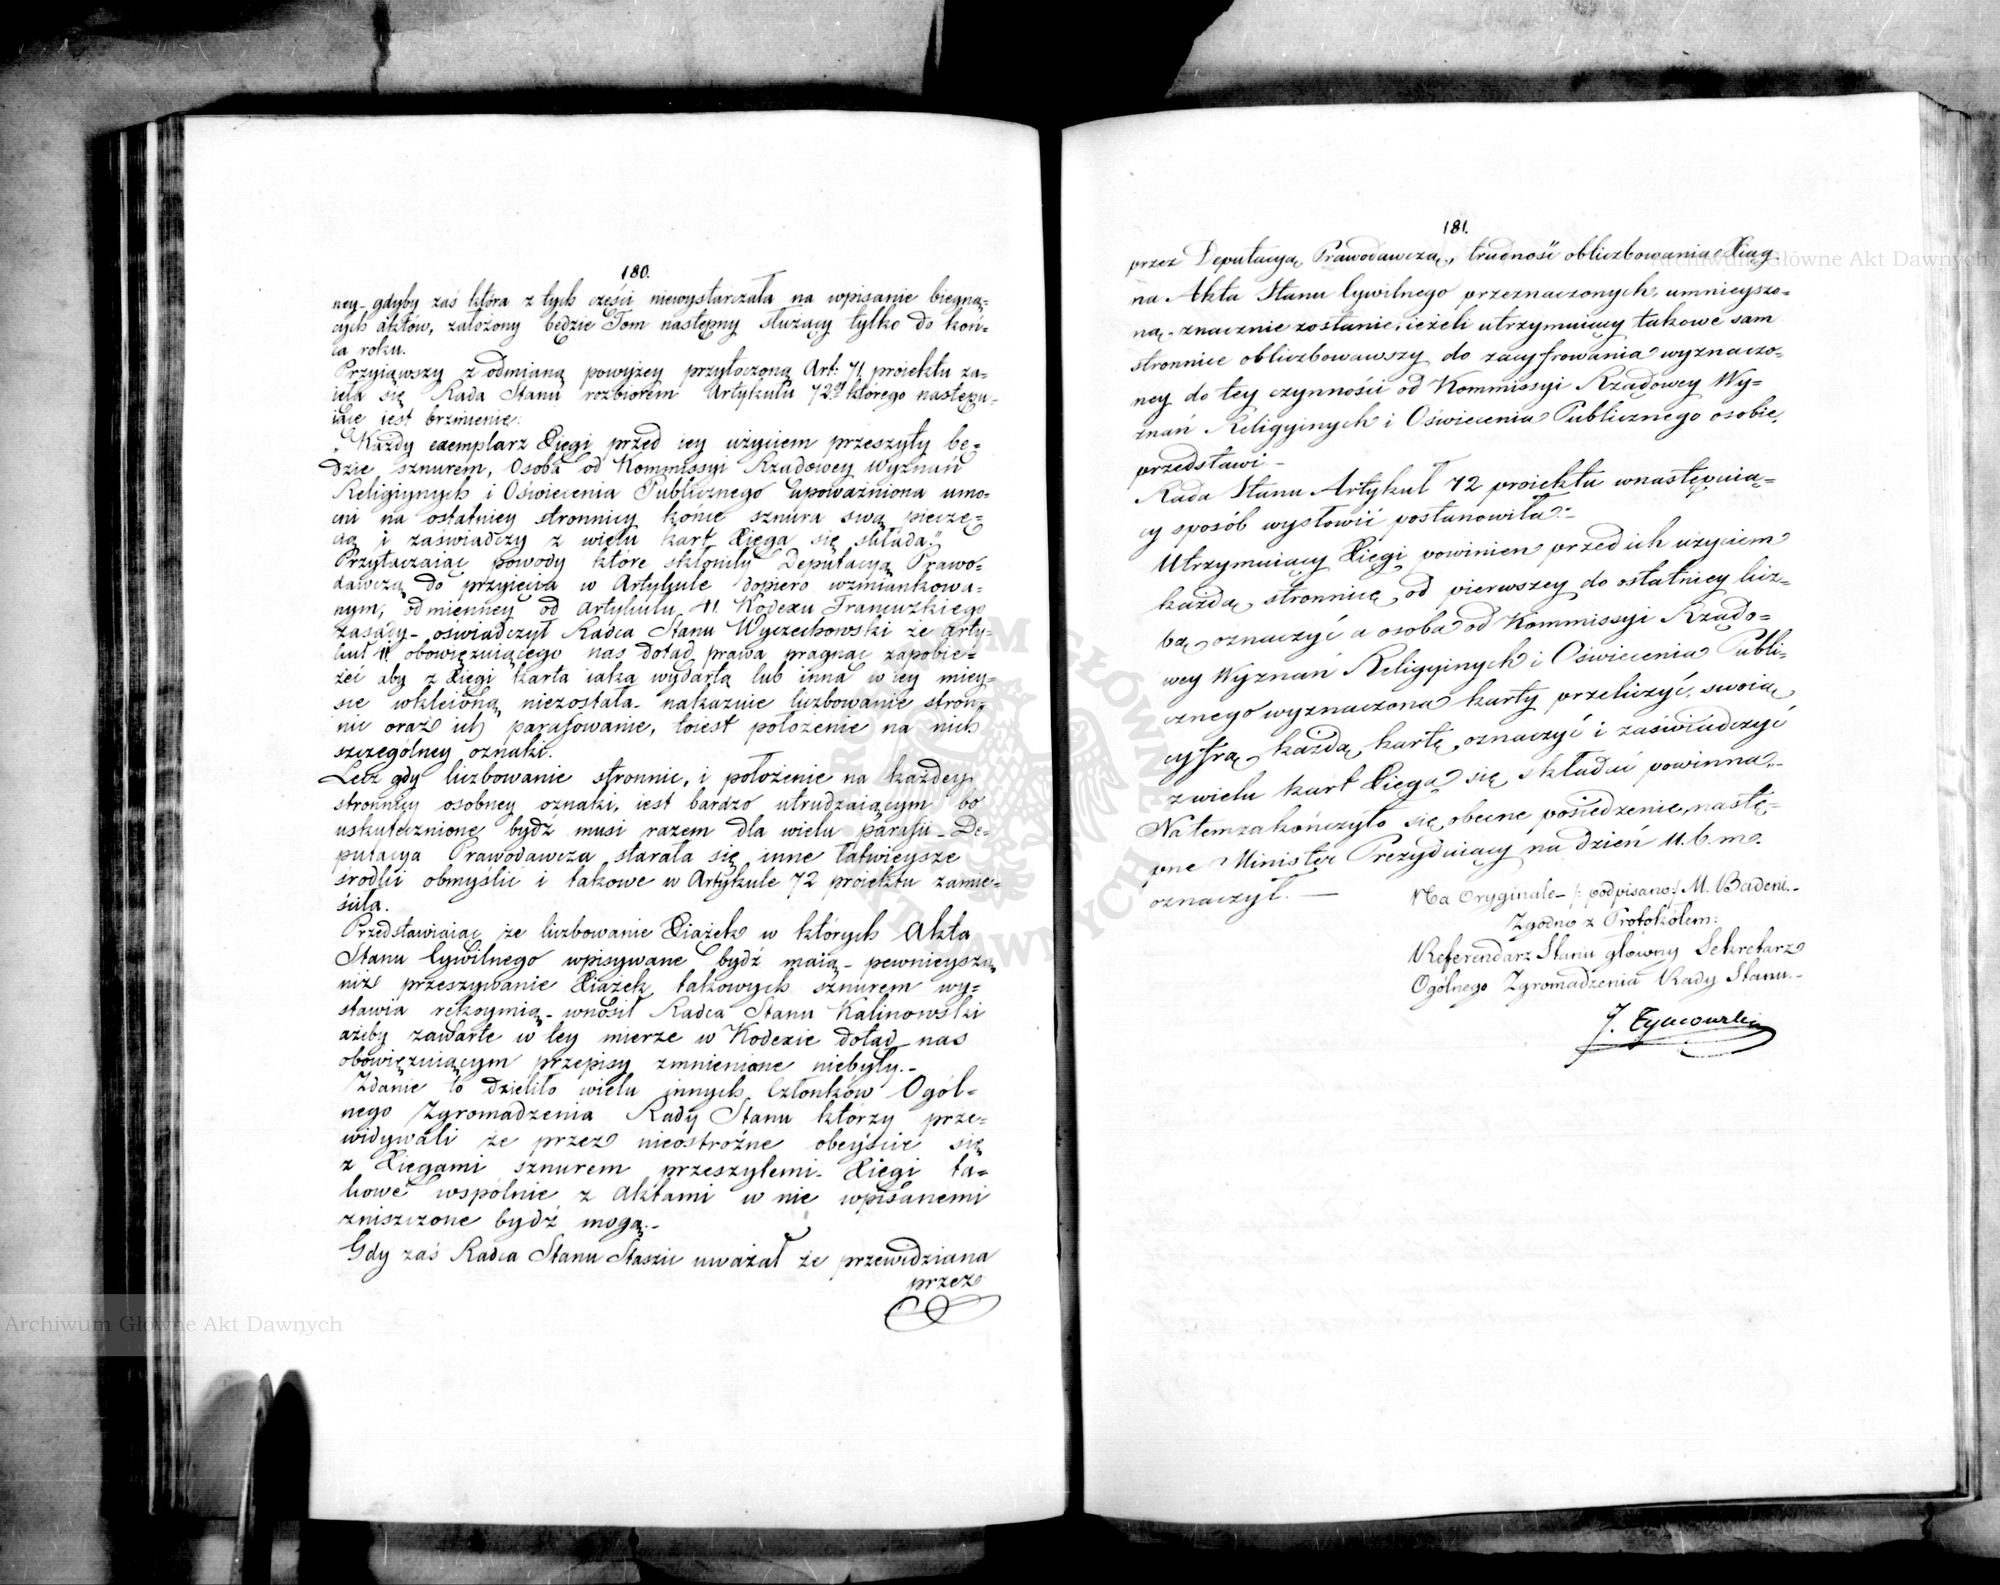 180.
ney- gdyby zaś która z tych cześci niewystarczała na wpisanie biegną=
cych aktów, założony będzie Tom następny służący tylko do koń=
ca roku.
Przyiąwszy z odmianą powyżey przytoczoną Art: 71. proiektu za=
ięła się Rada Stanu rozbiorem Artykułu 72go którego następu=
iące iest brzmienie:
"Każdy exemplarz Xięgi przed iey użyciem przeszyty bę=
dzie sznurem, Osoba od Kommissyi Rządowey Wyznań
Religiynych i Oświecenia Publicznego upoważniona umo=
cni na ostatniey stronnicy końce sznura swą pieczę=
cią i zaświadczy z wielu kart Xięga się składa."
Przytaczaiąc powody które skłoniły Deputacyą Prawo=
dawczą do przyięcia w Artykule dopiero wzmiankowa=
nym, odmienney od Artykułu 41. Kodexu Francuzkiego
zasady- oświadczył Radca Stanu Wyczechowski że arty=
kuł 41. obowięzuiącego nas dotąd prawa pragnąc zapobie=
żeć aby z Xięgi karta iaka wydartą lub inna w iey miey=
sce wkleioną niezostała- nakazuie liczbowanie stron=
nic oraz ich parafowanie, toiest położenie na nich
szczególney oznaki.
Lecz gdy liczbowanie stronnic, i położenie na każdey
stronnicy osobney oznaki, iest bardzo utrudzaiącym bo
uskutecznione bydź musi razem dla wielu parafii- De=
putacya Prawodawcza starała się inne łatwieysze
środki obmyślić i takowe w Artykule 72 proiektu zamie=
ściła.
Przedstawiaiąc że liczbowanie Xiążek w których Akta
Stanu Cywilnego wpisywane bydź maią- pewnieyszą
niż przeszywanie Xiążek takowych sznurem wy=
stawia rękoymią- wnosił Radca Stanu Kalinowski
ażeby zawarte w tey mierze w Kodexie dotąd nas
obowięzuiącym przepisy zmnienione niebyły.-
Zdanie to dzieliło wielu innych Członków Ogól=
nego Zgromadzenia Rady Stanu którzy prze=
widywali że przez nieostrożne obeyście się
z Xięgami sznurem przeszytemi- Xięgi ta=
kowe wspólnie z Aktami w nie wpisanemi
zniszczone bydź mogą.-
Gdy zaś Radca Stanu Staszic uważał że przewidziana
przez
181.
przez Deputacyą Prawodawczą, trudność obliczbowania Xiąg
na Akta Stanu Cywilnego przeznaczonych, umnieyszo=
ną- znacznie zostanie, ieżeli utrzymuiący takowe sam
stronnice obliczbowawszy do zacyfrowania wyznaczo=
ney do tey czynności od Kommissyi Rządowey Wy=
znań Religiynych i Oświecenia Publicznego osobie,
przedstawi-
Rada Stanu Artykuł 72 proiektu wnastępuią=
cy sposób wysłowić postanowiła:-
Utrzymuiący Xięgi powinien przed ich użyciem
każdą stronnicę od pierwszey do ostatniey licz=
bą oznaczyć a osoba od Kommissyi Rządo=
wey Wyznań Religiynych i Oświecenia Publi=
cznego wyznaczona karty przeliczyć, swoią
cyfrą każdą kartę oznaczyć i zaświadczyć
z wielu kart Xięga się składać powinna.-
Na tem zakończyło się obecne posiedzenie, nastę=
pne Minister Prezyduiący na dzień 11. b. m.
oznaczył. —
Na Oryginale- /: podpisano:/ M. Badeni.-
Zgodno z Protokołem:
Referendarz Stanu główny Sekretarz
Ogólnego Zgromadzenia Rady Stanu.-
J. Tymowski
Archiwum Główne Akt Dawnych
Archiwum Główne Akt Dawnych
ARCHIWUM GŁÓWNE AKT DAWNYCH